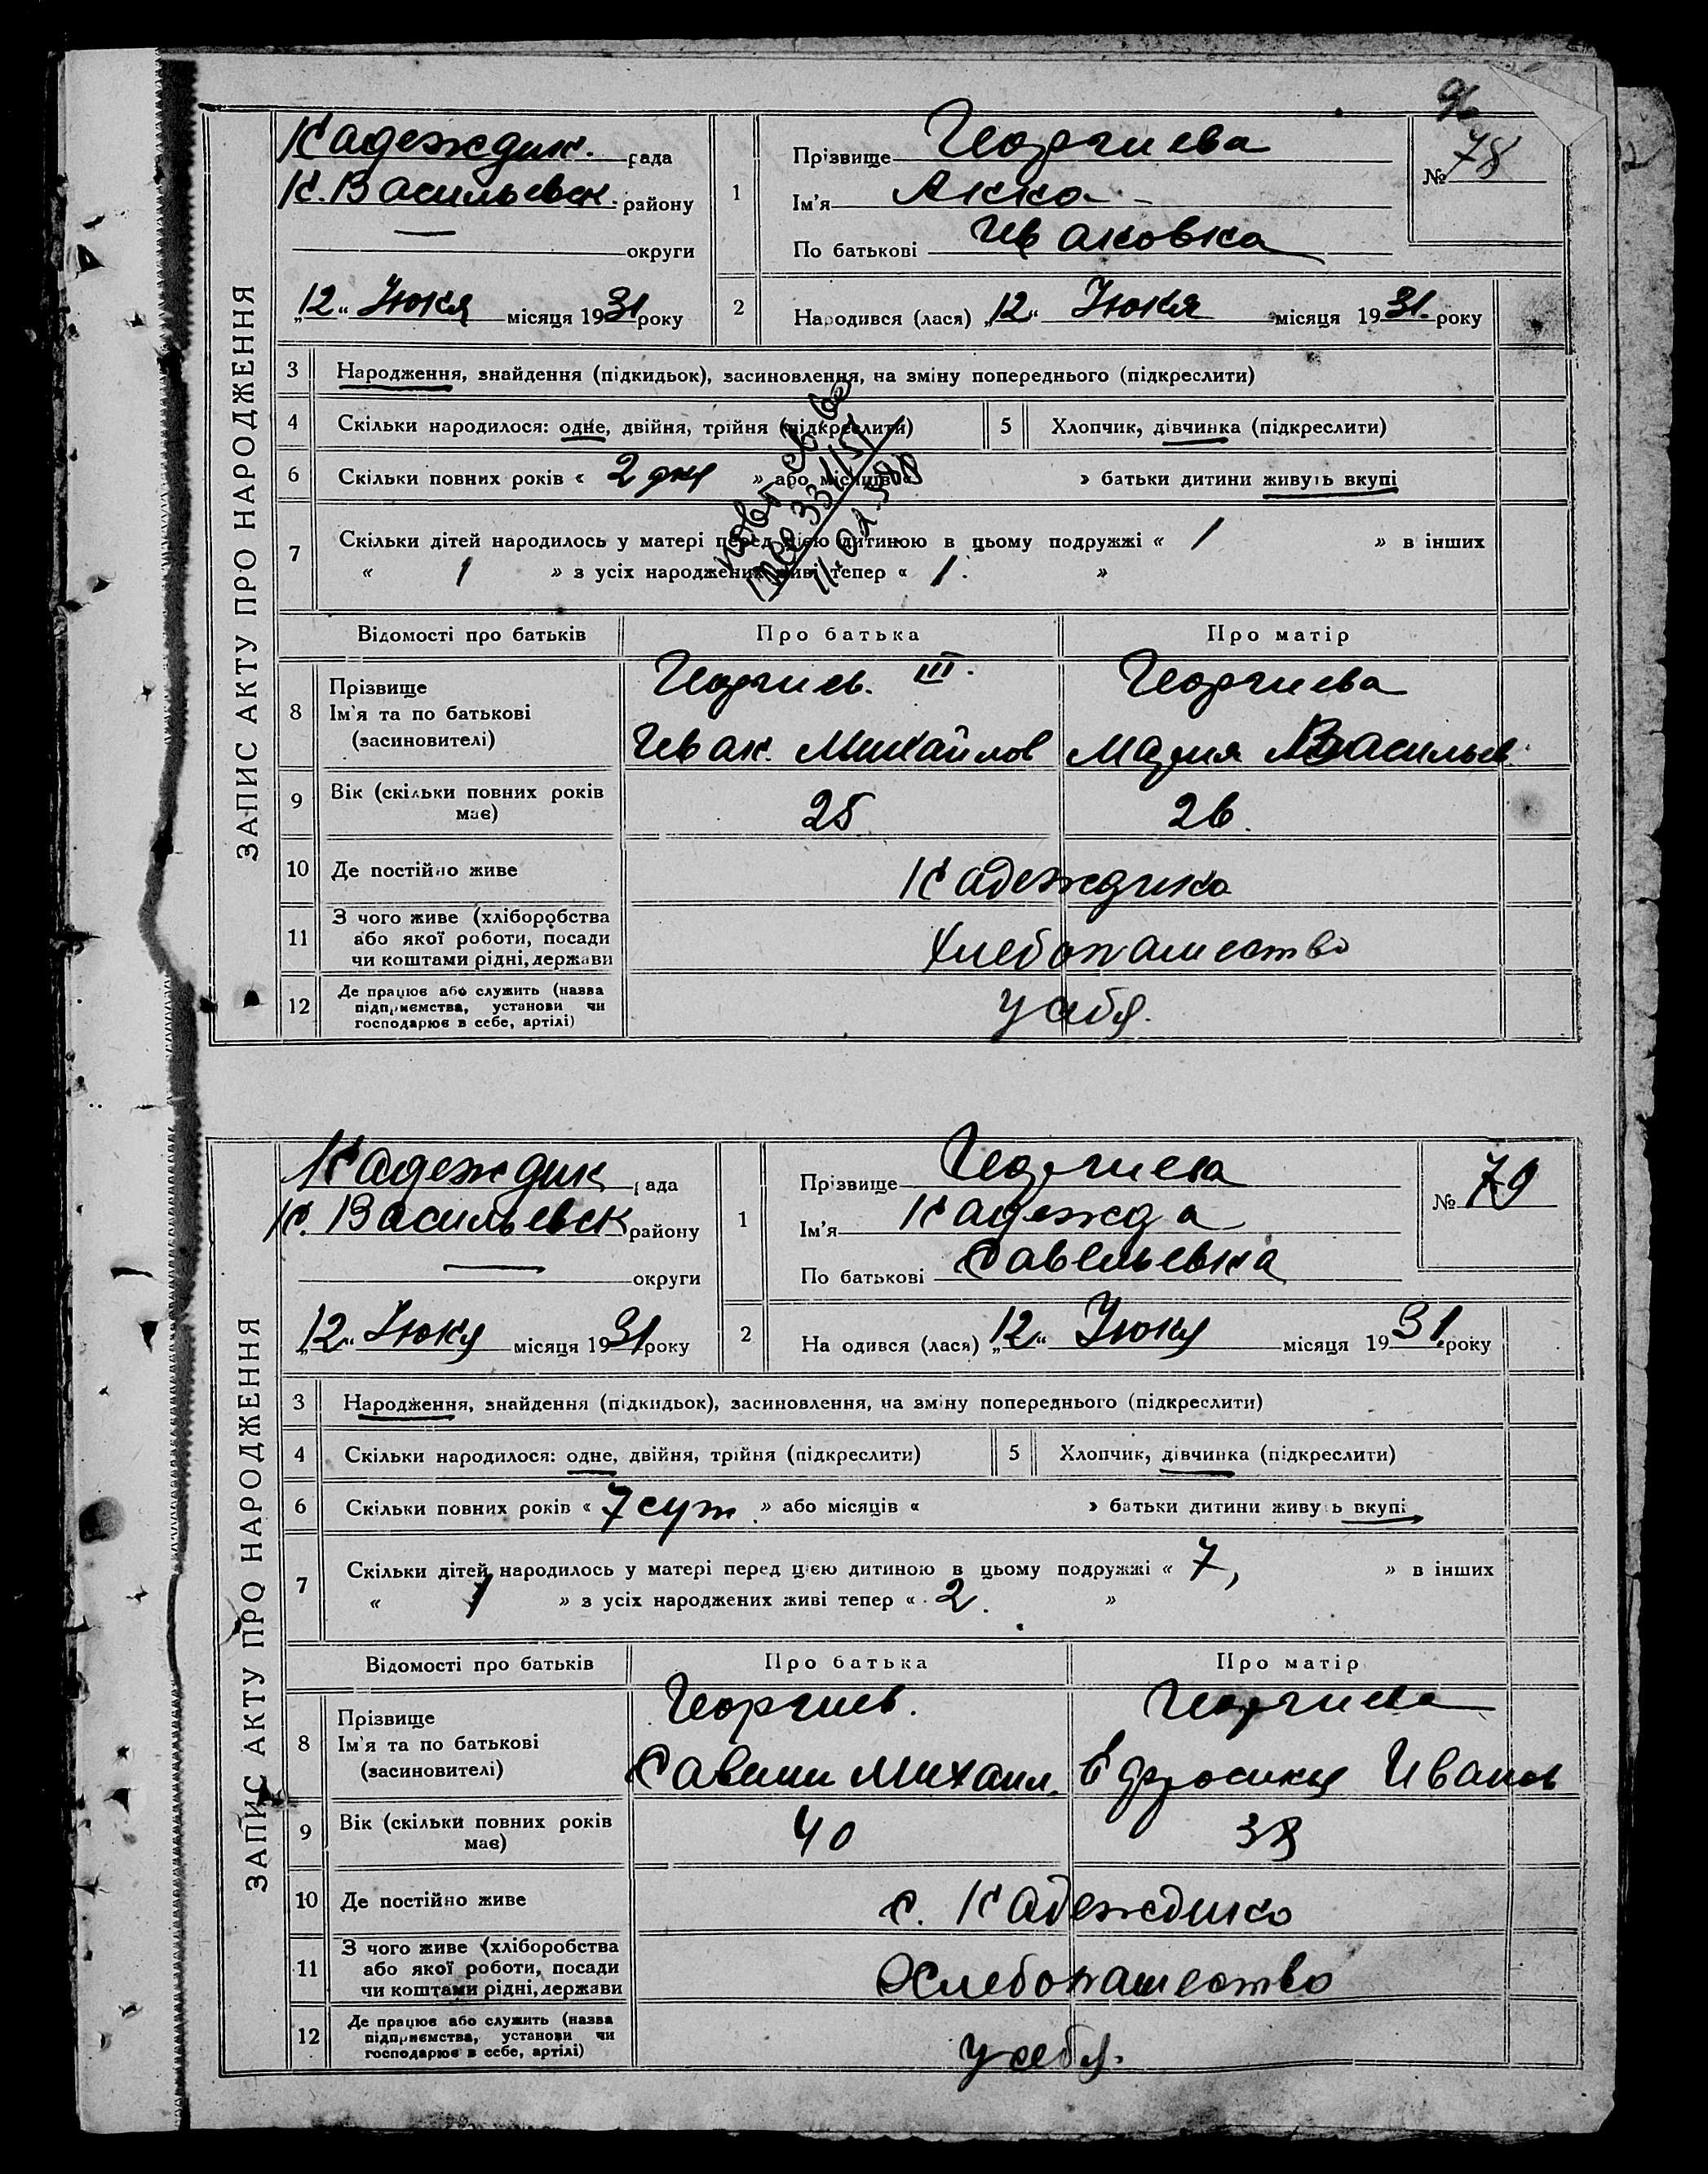 96
ЗАПИС АКТУ ПРО НАРОДЖЕННЯ
Надеждин. рада
Н. Васильевск. району
— округи
„12“ Июня місяця 1931 року
1 Прізвище Георгиева
Ім'я Анна
По батькові Ивановна
№ 78
2 Народився (лася) „12“ Июня місяця 1931. року
3 Народження, знайдення (підкидьок), засиновлення, на зміну попереднього (підкреслити)
4 Скільки народилося: одне, двійня, трійня (підкреслити)
5 Хлопчик, дівчинка (підкреслити)
6 Скільки повних років « 2 дня » або місяців « » батьки дитини живуть вкупі
7 Скільки дітей народилось у матері перед цією дитиною в цьому подружжі « 1 » в інших
« 1 » з усіх народжених живі тепер « 1. »
Відомості про батьків Про батька Про матір
8 Прізвище
Ім'я та по батькові
(засиновителі)
Георгиев. III.
Иван. Михайлов
Георгиева
Мария Васильев.
9 Вік (скільки повних років має) 25 26.
10 Де постійно живе Надеждина
11 З чого живе (хліборобства
або якої роботи, посади
чи коштами рідні, держави
Хлебопашество
12 Де працює або служить (назва
підприємства, установи чи
господарює в себе, артілі)
у себя.
ЗАПИС АКТУ ПРО НАРОДЖЕННЯ
Надеждин рада
Н. Васильевск району
— округи
„12“ Июня місяця 1931 року
1 Прізвище Георгиева
Ім'я Надежда
По батькові Савельевна
№ 79
2 На одився (лася) „12“ Июня місяця 1931. року
3 Народження, знайдення (підкидьок), засиновлення, на зміну попереднього (підкреслити)
4 Скільки народилося: одне, двійня, трійня (підкреслити)
5 Хлопчик, дівчинка (підкреслити)
6 Скільки повних років « 7 сут. » або місяців « » батьки дитини живуть вкупі
7 Скільки дітей народилось у матері перед цією дитиною в цьому подружжі « 7, » в інших
« 1 » з усіх народжених живі тепер « 2. »
Відомості про батьків Про батька Про матір
8 Прізвище
Ім'я та по батькові
(засиновителі)
Георгиев.
Савелий Михаил.
Георгиева
Ефросиния Иванов
9 Вік (скільки повних років має) 40 38
10 Де постійно живе с. Надеждина
11 З чого живе (хліборобства
або якої роботи, посади
чи коштами рідні, держави
Хлебопашество
12 Де працює або служить (назва
підприємства, установи чи
господарює в себе, артілі)
у себя.